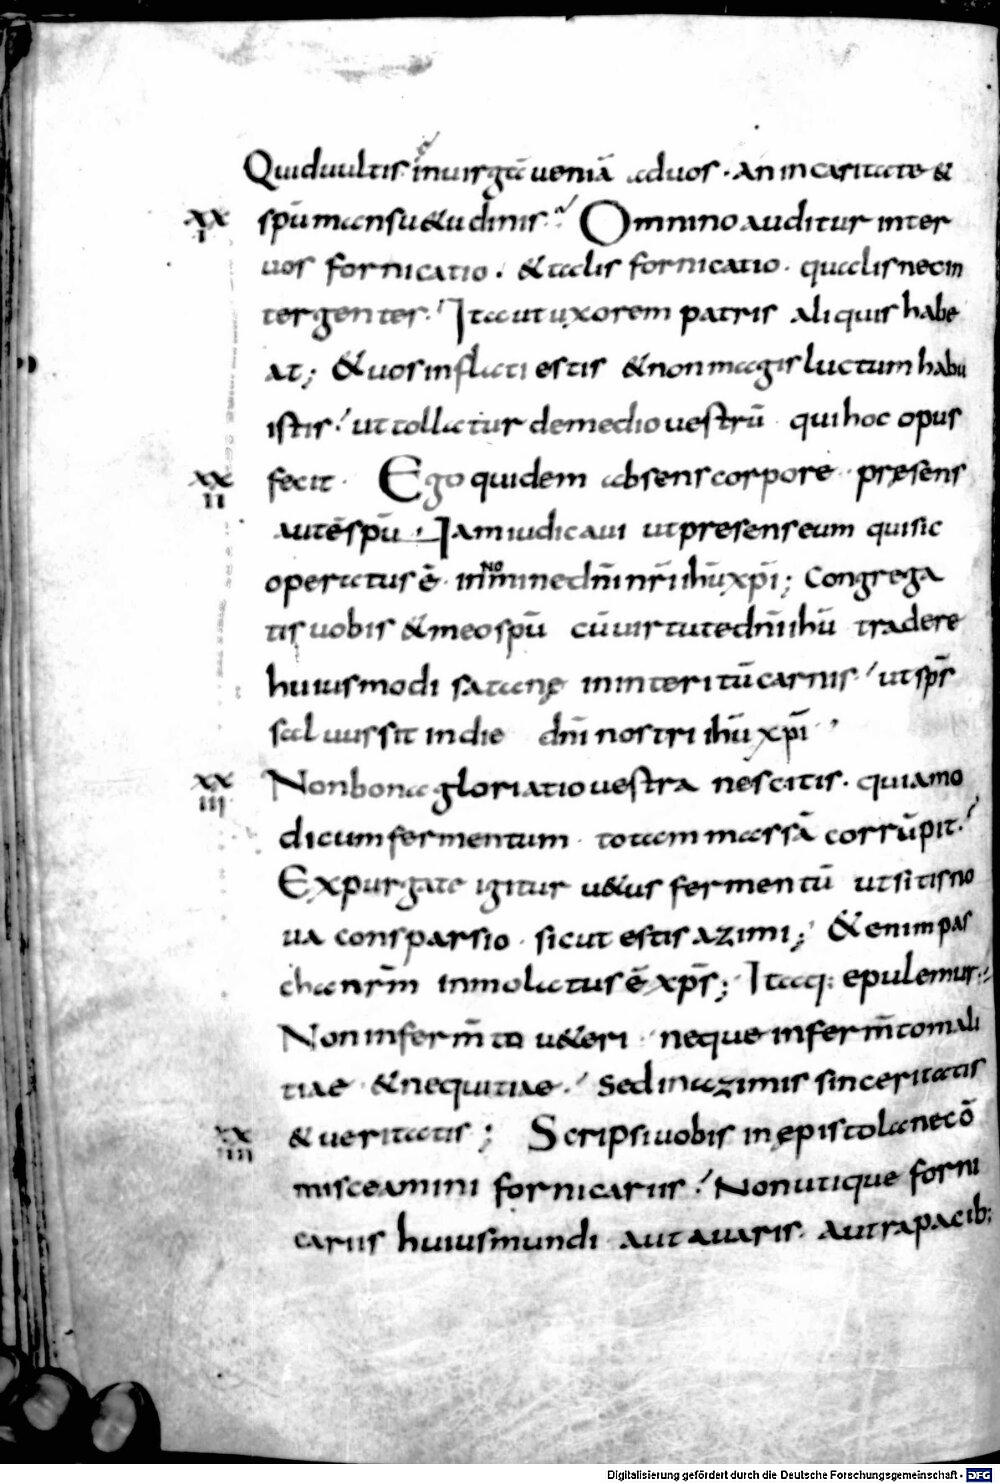 Quid uultis in uirga ueniā ad uos · an in caritate &
XXI spū mansu&udinis · Omnino auditur inter
uos fornicatio · & talis fornicatio · qualis nec in
ter gentes · Ita ut uxorem patris aliquis habe
at ; & uos inflati estis & non magis luctum habu
istis · ut tollatur de medio uestrū qui hoc opus
XXII fecit · Ego quidem absens corpore · pręsens
autē spū · Iam iudicaui ut presens eum qui sic
operatus ē · in nomine dn̄i nr̄i ih̄u xp̄i ; Congrega
tis uobis & meo spū cū uirtute dn̄i ih̄u tradere
huiusmodi satanę in interitū carnis · ut sp̄s
saluus sit in die dn̄i nostri ih̄u xp̄i
XXIII Non bona gloriatio uestra nescitis · quia mo
dicum fermentum totam massā corrūpit ·
Expurgate igitur u&us fermentū ut sitis no
ua consparsio · sicut estis azimi ; &enim pas
cha nr̄m inmolatus ē xp̄s ; Itaq: epulemur ·
Non in ferm̄to u&eri · neque in ferm̄to mali
tiae & nequitiae · Sed in azimis sinceritatis
XXIIII & ueritatis ; Scripsi uobis in ępistola ne cō
misceamini fornicariis · Non utique forni
cariis huius mundi aut auaris · aut rapacib;
Digitalisierung gefördert durch die Deutsche Forschungsgemeinschaft - DFG